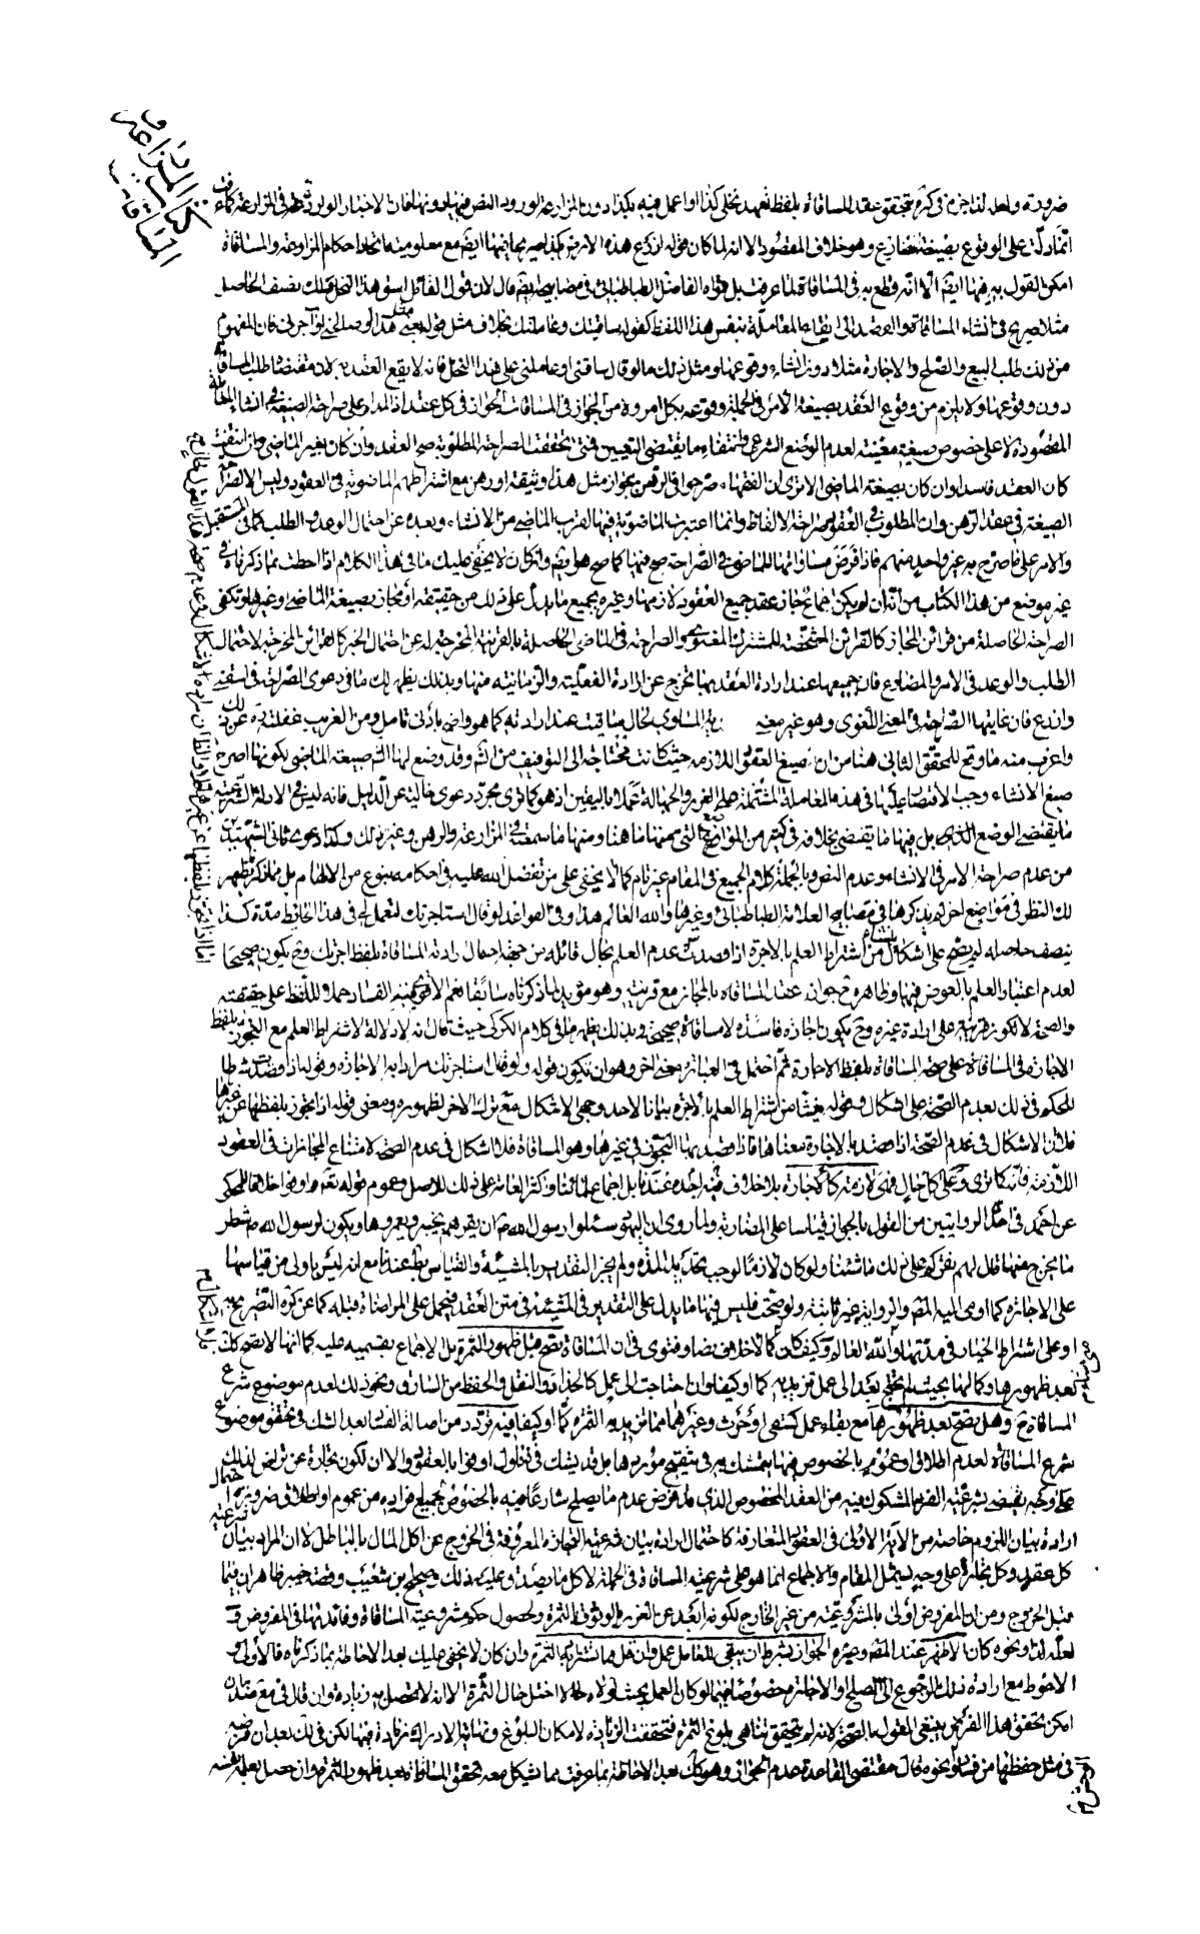 كتاب المزارعة
المساقات
ضرورة ولعله لذا جزم في كرة بتحقق عقد المساقاة بلفظ تعهد نخلي كذا او اعمل فيه بكذا دون المزارعة لورود النص فيها دونها فان الاخبار الواردة في المزارعة
انما دلت على الوقوع بصيغة المضارع وهو خلاف المقصود الا انه لما كان قوله ازرع هذه الارض كذا امر بها فيها ايضا مع معلومية اتحاد احكام المزارعة والمساقاة
امكن القول به فيها ايضا الا انه قطع به في المساقاة لما عرفت بل قواه الفاضل الطباطبائي في مصابيحه ايضا قال لان قول القائل اسق هذا النخل ولك نصف الحاصل
مثلا صريح في انشاء المساقاة والقصد الى ايقاع المعاملة بنفس هذا اللفظ كقوله ساقيتك وعاملتك بخلاف مثل قوله بعني هذا او صالحني او آجرني فان المفهوم
من ذلك طلب البيع والصلح والاجارة مثلا دون انشاء وقوعها ومثل ذلك ما لو قال ساقني او عاملني على هذا النخل فانه لا يقع العقد به لان مقتضاه طلب المساقاة
دون وقوعها ولا يلزم من وقوع العقد بصيغة الامر في الجملة وقوعه بكل امر ولا من الجواز في المساقات الجواز في كل عقد اذ المدار على صراحة الصيغة في انشاء المعاملة
المقصودة لا على خصوص صيغة معينة لعدم الوضع الشرعي وانتفاء ما يقتضي التعيين فمتى تحققت الصراحة المطلوبة صح العقد وان كان بغير الماضي وان انتفت
كان العقد فاسدا وان كان بصيغة الماضي الا ترى ان الفقهاء صرحوا في الرهن بجواز مثل هذا وثيقة او رهن مع اشتراطهم الماضوية في العقود وليس الا لصراحة
الصيغة في عقد الرهن وان المطلوب في العقود صراحة الالفاظ وانما اعتبرت الماضوية فيها لقرب الماضي من الانشاء وبعده عن احتمال الوعد والطلب كما في المستقبل
والامر على ما صرح به غير واحد منهم فاذا فرض مساواتهما للماضي في الصراحة صح فيها كما صح هو ايضا ولكن لا يخفى عليك ما في هذا الكلام اذا احطت بما ذكرناه في
غير موضع من هذا الكتاب من انه ان لم يكن اجماع لجاز عقد جميع العقود لازمها وغيره بجميع ما يدل على ذلك من حقيقة او مجاز بصيغة الماضي وغيرها وتكفي
الصراحة الحاصلة من قرائن المجاز كالقرائن المشخصة للمشترك المعنوي والصراحة في الماضي الحاصلة بالقرينة المخرجة له عن احتمال الخبر كالقرائن المخرجة لاحتمال
الطلب والوعد في الامر والمضارع فان جميعها عند ارادة العقد بها تخرج عن ارادة الفعلية والزمانية منها وبذلك يظهر لك ما في دعوى الصراحة في اسقه
وازرع فان غايتها الصراحة في المعنى اللغوي وهو غير معنيه المساوي لحال ساقيت عند ارادته كما هو واضح بادنى تامل ومن الغريب غفلته عن ذلك
واغرب منه ما وقع للمحقق الثاني هنا من ان صيغ العقود اللازمة حيث كانت محتاجة الى التوقيف من الشرع وقد وضع لها الشرع صيغة الماضي لكونها اصرح
صيغ الانشاء وجب الاقتصار عليها في هذه المعاملة المشتملة على الغرر والجهالة عملا باليقين اذ هو كما ترى مجرد دعوى خالية عن الدليل فانه ليس في الادلة الشرعية
ما يقتضي الوضع المذكور بل فيها ما يقتضي بخلافه في كثير من المواضع التي منها ما هنا ومنها ما سمعته في المزارعة والرهن وغير ذلك وكذا دعوى ثاني الشهيدين
من عدم صراحة الامر في الانشاء وعدم النص وبالجملة كلام الجميع في المقام غير تام كما لا يخفى على من تفضل الله عليه في احكامه بنوع من الالهام بل مما ذكر يظهر
لك النظر في مواضع اخر لم يذكرها في مصابيح العلامة الطباطبائي وغيرها والله العالم هذا وفي القواعد لو قال استاجرتك لتعمل لي في هذا الحائط مدة كذا
بنصف حاصله لم يصح على اشكال ينشا من اشتراط العلم بالاجرة اذا قصدت عدم العلم بحال قائله من جهة احتمال ارادته المساقاة بلفظ اجرتك وحينئذ يكون صحيحا
لعدم اعتبار العلم بالعوض فيها وظاهره جواز عقد المساقاة بالمجاز مع قرينة وهو مؤيد لما ذكرناه سابقا نعم الاقوى فيه الفساد حملا للفظ على حقيقته
والصحة لا تكون قرينة على ارادة غيره وحينئذ يكون اجارة فاسدة لا مساقاة صحيحة وبذلك يظهر ما في كلام الكركي حيث قال انه لا دلالة لاشتراط العلم مع التجوز بلفظ
الاجارة في المساقاة على صحة المساقاة بلفظ الاجارة ثم احتمل في العبارة معنى اخر وهو ان يكون قوله ولو قال استاجرتك مرادا به الاجارة وقوله اذا قصدت شرطا
للحكم في ذلك بعدم الصحة على اشكال وقوله ينشا من اشتراط العلم بالاجرة بيانا لاحد وجهي الاشكال مع ترك الاخر لظهوره ومعنى قوله اذا تجوز بلفظها عن غيرها
فلا ان الاشكال في عدم الصحة اذا قصد بالاجارة معناها فاذا قصد بها التجوز في غيرها وهو المساقاة فلا اشكال في عدم الصحة لامتناع المجازات في العقود
اللازمة فانه كما ترى وعلى كل حال فهي لازمة كالاجارة بلا خلاف فيه اجده عندنا بل اجماع علمائنا وأكثر العامة على ذلك للاصل وعموم قوله تعالى اوفوا خلافا للمحكي
عن احمد في احدى الروايتين من القول بالجواز قياسا على المضاربة ولما روي ان اليهود سئلوا رسول الله ان يقرهم بخيبر ويعمروها ويكون لرسول الله شطر
ما يخرج منها قال لهم نقركم على ذلك ما شئنا ولو كان لازما لوجب تقدير المدة ولم يجز التقدير بالمشيئة والقياس بط عندنا مع انه ليس باولى من قياسها
على الاجارة كما اومى اليه المصنف والرواية غير ثابتة ولو صحت فليس فيها ما يدل على التقدير في المشيئة في متن العقد فيحمل على المراضاة قبله كما عن كره التصريح به
او على اشتراط الخيار في مدتها والله العالم وكيف كان فلا خلاف نصا وفتوى في ان المساقاة تصح قبل ظهور الثمرة بل الاجماع بقسميه عليه كما انها لا تصح كك
بعد ظهورها وكمالها بحيث لم تحتج بعد الى عمل تزيد به كما او كيفا وان احتاجت الى عمل كالجذاذ والنقل والحفظ من السارق ونحو ذلك لعدم موضوع شرع
المساقاة ح وهل تصح بعد ظهورها مع بقاء عمل كسقي او حرث وغيرهما مما تزيد به الثمرة كما او كيفا فيه تردد من اصالة الفساد بعد الشك في تحقق موضوع
شرع المساقاة لعدم اطلاق او عموم بالخصوص فيها يتمسك به في تنقيح مؤيدها بل قد يشك في تناول اوفوا بالعقود والا ان تكون تجارة عن تراض لذلك
على وجه يقتضي شرعية الفرد المشكوك فيه من العقد المخصوص الذي فرض عدم ما يصلح شارعا فيه بالخصوص لجميع افراده من عموم او اطلاق ضرورة احتمال
ارادة بيان اللزوم خاصة من الآية الاولى في العقود المتعارفة كاحتمال ارادة بيان شرعية التجارة المعروفة في الخروج عن اكل المال بالباطل لا ان المراد بيان شرعية
كل عقد وكل تجارة على وجه يشمل المقام والاجماع انما هو على شرعية المساقاة في الجملة لا كل ما يصدق عليه ذلك وصحيح بن شعيب وقصة خيبر ظاهران فيما
قبل الخروج ومن ان المفروض اولى بالمشروعية من غير الخارج لكونه ابعد عن الغرر والوثوق بالثمرة ولحصول حكمة مشروعية المساقاة وفائدتها في المفروض
لعله لذا ونحوه كان الاظهر عند المصنف وغيره الجواز بشرط ان يبقى للعامل عمل وان قل مما تستزاد به الثمرة وان كان لا يخفى عليك بعد الاحاطة بما ذكرناه فالاولى و
الاحوط مع ارادة ذلك الرجوع الى الصلح والاجارة خصوصا فيما لو كان العمل بحيث لولاه لاختل حال الثمرة الا انه لا يحصل به زيادة وان قال في مع صدد
امكن تحقق هذا الفرض ينبغي القول بالصحة لانه لم يتحقق تناهي بلوغ الثمرة فتحققت الزيادة لامكان البلوغ ونهاية الادراك زيادة فيها لكن في لك بعد ان فرضه
في مثل حفظها من فساد ونحوه قال مقتضى القاعدة عدم الجواز وهو كك بعد الاحاطة بما عرفت مما يشكل معه تحقق المساقاة بعد ظهور الثمرة وان حصل بعمله